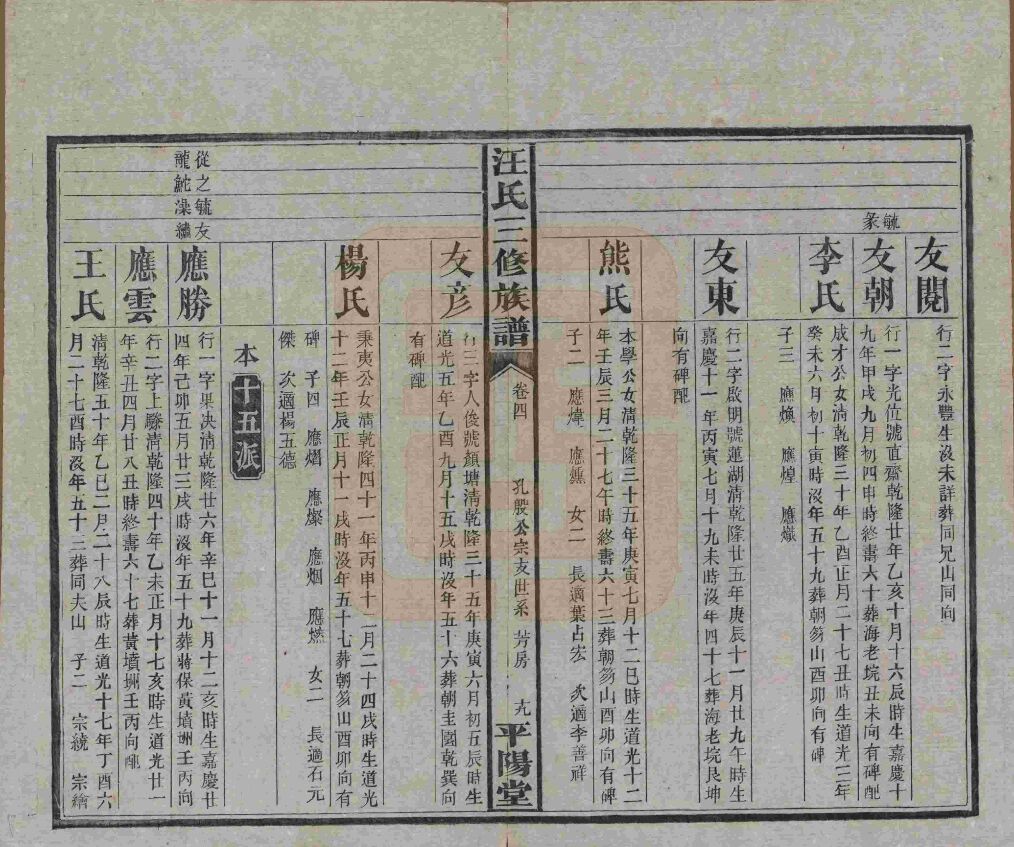 友閱
行二字永豐生沒未詳葬同兄山同向
毓
彖
友朝
行一字光位號直齋乾隆廿年乙亥十月十六辰時生嘉慶十
九年甲戌九月初四申時終壽六十葬海老垸丑未向有碑配
李氏
成才公女清乾隆三十年乙酉正月二十七丑時生道光三年
癸未六月初十寅時沒年五十九葬朝笏山酉卯向有碑
子三 應煥 應煌 應熾
友東
行二字啟明號蓮湖清乾隆廿五年庚辰十一月廿九午時生
嘉慶十一年丙寅七月十九未時沒年四十七葬海老垸艮坤
向有碑配
熊氏
本學公女清乾隆三十五年庚寅七月十二巳時生道光十二
年壬辰三月二十七午時終壽六十三葬朝笏山酉卯向有碑
子二 應煒 應燻 女二 長適葉占宏 次適李善祥
汪氏三修族譜
卷四
孔殷公宗支世系 芳房 十九
平陽堂
友彦
行三字人俊號鎮塘清乾隆三十五年庚寅六月初五辰時生
道光五年乙酉九月十五戌時沒年五十六葬朝圭園乾巽向
有碑配
楊氏
秉夷公女清乾隆四十一年丙申十二月二十四戌時生道光
十二年壬辰正月十一戌時沒年五十七葬朝笏山酉卯向有
碑 子四 應熠 應燦 應烟 應燃 女二 長適石元
傑 次適楊五德
本十五派
從之毓友
龍鮀澡繡
應勝
行一字果決清乾隆廿六年辛巳十一月十二亥時生嘉慶廿
四年己卯五月廿三戌時沒年五十九葬蔣保黃墳𡌶壬丙向
應雲
行二字上騰清乾隆四十年乙未正月十七亥時生道光廿一
年辛丑四月廿八丑時終壽六十七葬黃墳𡌶壬丙向配
王氏
清乾隆五十年乙巳二月二十八辰時生道光十七年丁酉六
月二十七酉時沒年五十三葬同夫山 子二 宗統 宗繪